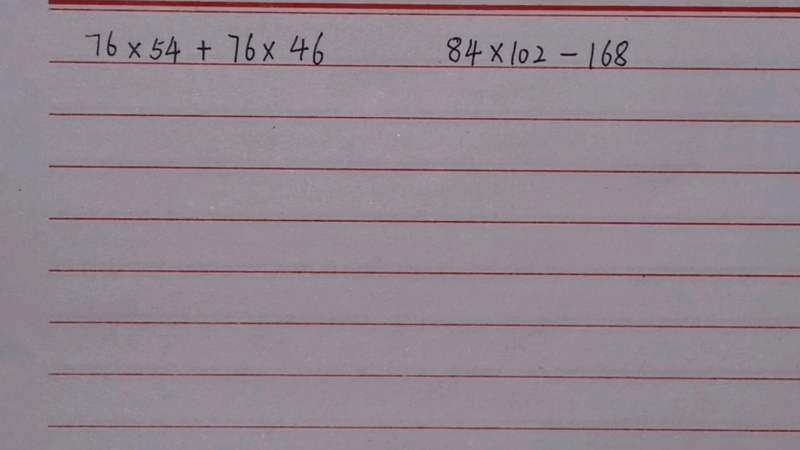 76 × 54 + 76 × 46 84 × 102 - 168